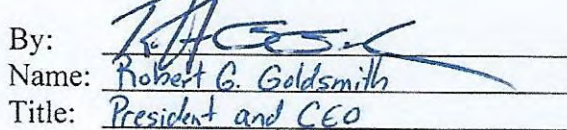 By:
Name: Robert G. Goldsmith
Title: President and CEO